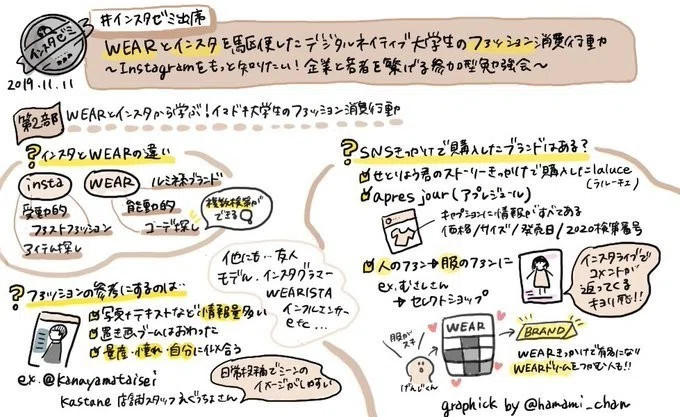 #インスタゼミ出席
インスタゼミ
2019.11.11
WEARとインスタを駆使したデジタルネイティブ大学生のファッション消費行動
〜Instagramをもっと知りたい！企業と若者を繋げる参加型勉強会〜
第2部 WEARとインスタから学ぶ！イマドキ大学生のファッション消費行動
?インスタとWEARの違い
insta
受動的
ファストファッション
アイテム探し
WEAR ルミネブランド
能動的
コーデ探し
複数検索が
できる
?ファッションの参考にするのは…
写真+テキストなど情報量多い
置き画ブームはおわった
身産・憧れ・自分に似合う
ex.@kanayamataisei
kastane 店舗スタッフえぐちょさん
日常投稿でシーンの
イメージがしやすい
他にも…友人
モデル.インスタグラマー
WEARISTA
インフルエンサー
etc...
?SNSきっかけで購入したブランドはある?
せとりょう君のストーリーきっかけで購入したlaluce
(ラルーチェ)
apres jour(アプレジュール)
キャプションに情報がすべてある
価格/サイズ/発売日/2020検索番号
人のファン→服のファンに
ex.むさしさん
→セレクトショップ
インスタライブで
コメントが
返ってくる
キョリ感!!
服が
スキ
げんじくん
WEAR
BRAND
WEARきっかけで有名になり
WEARドリームをつかむ人も!!
graphick by @hamami_chan